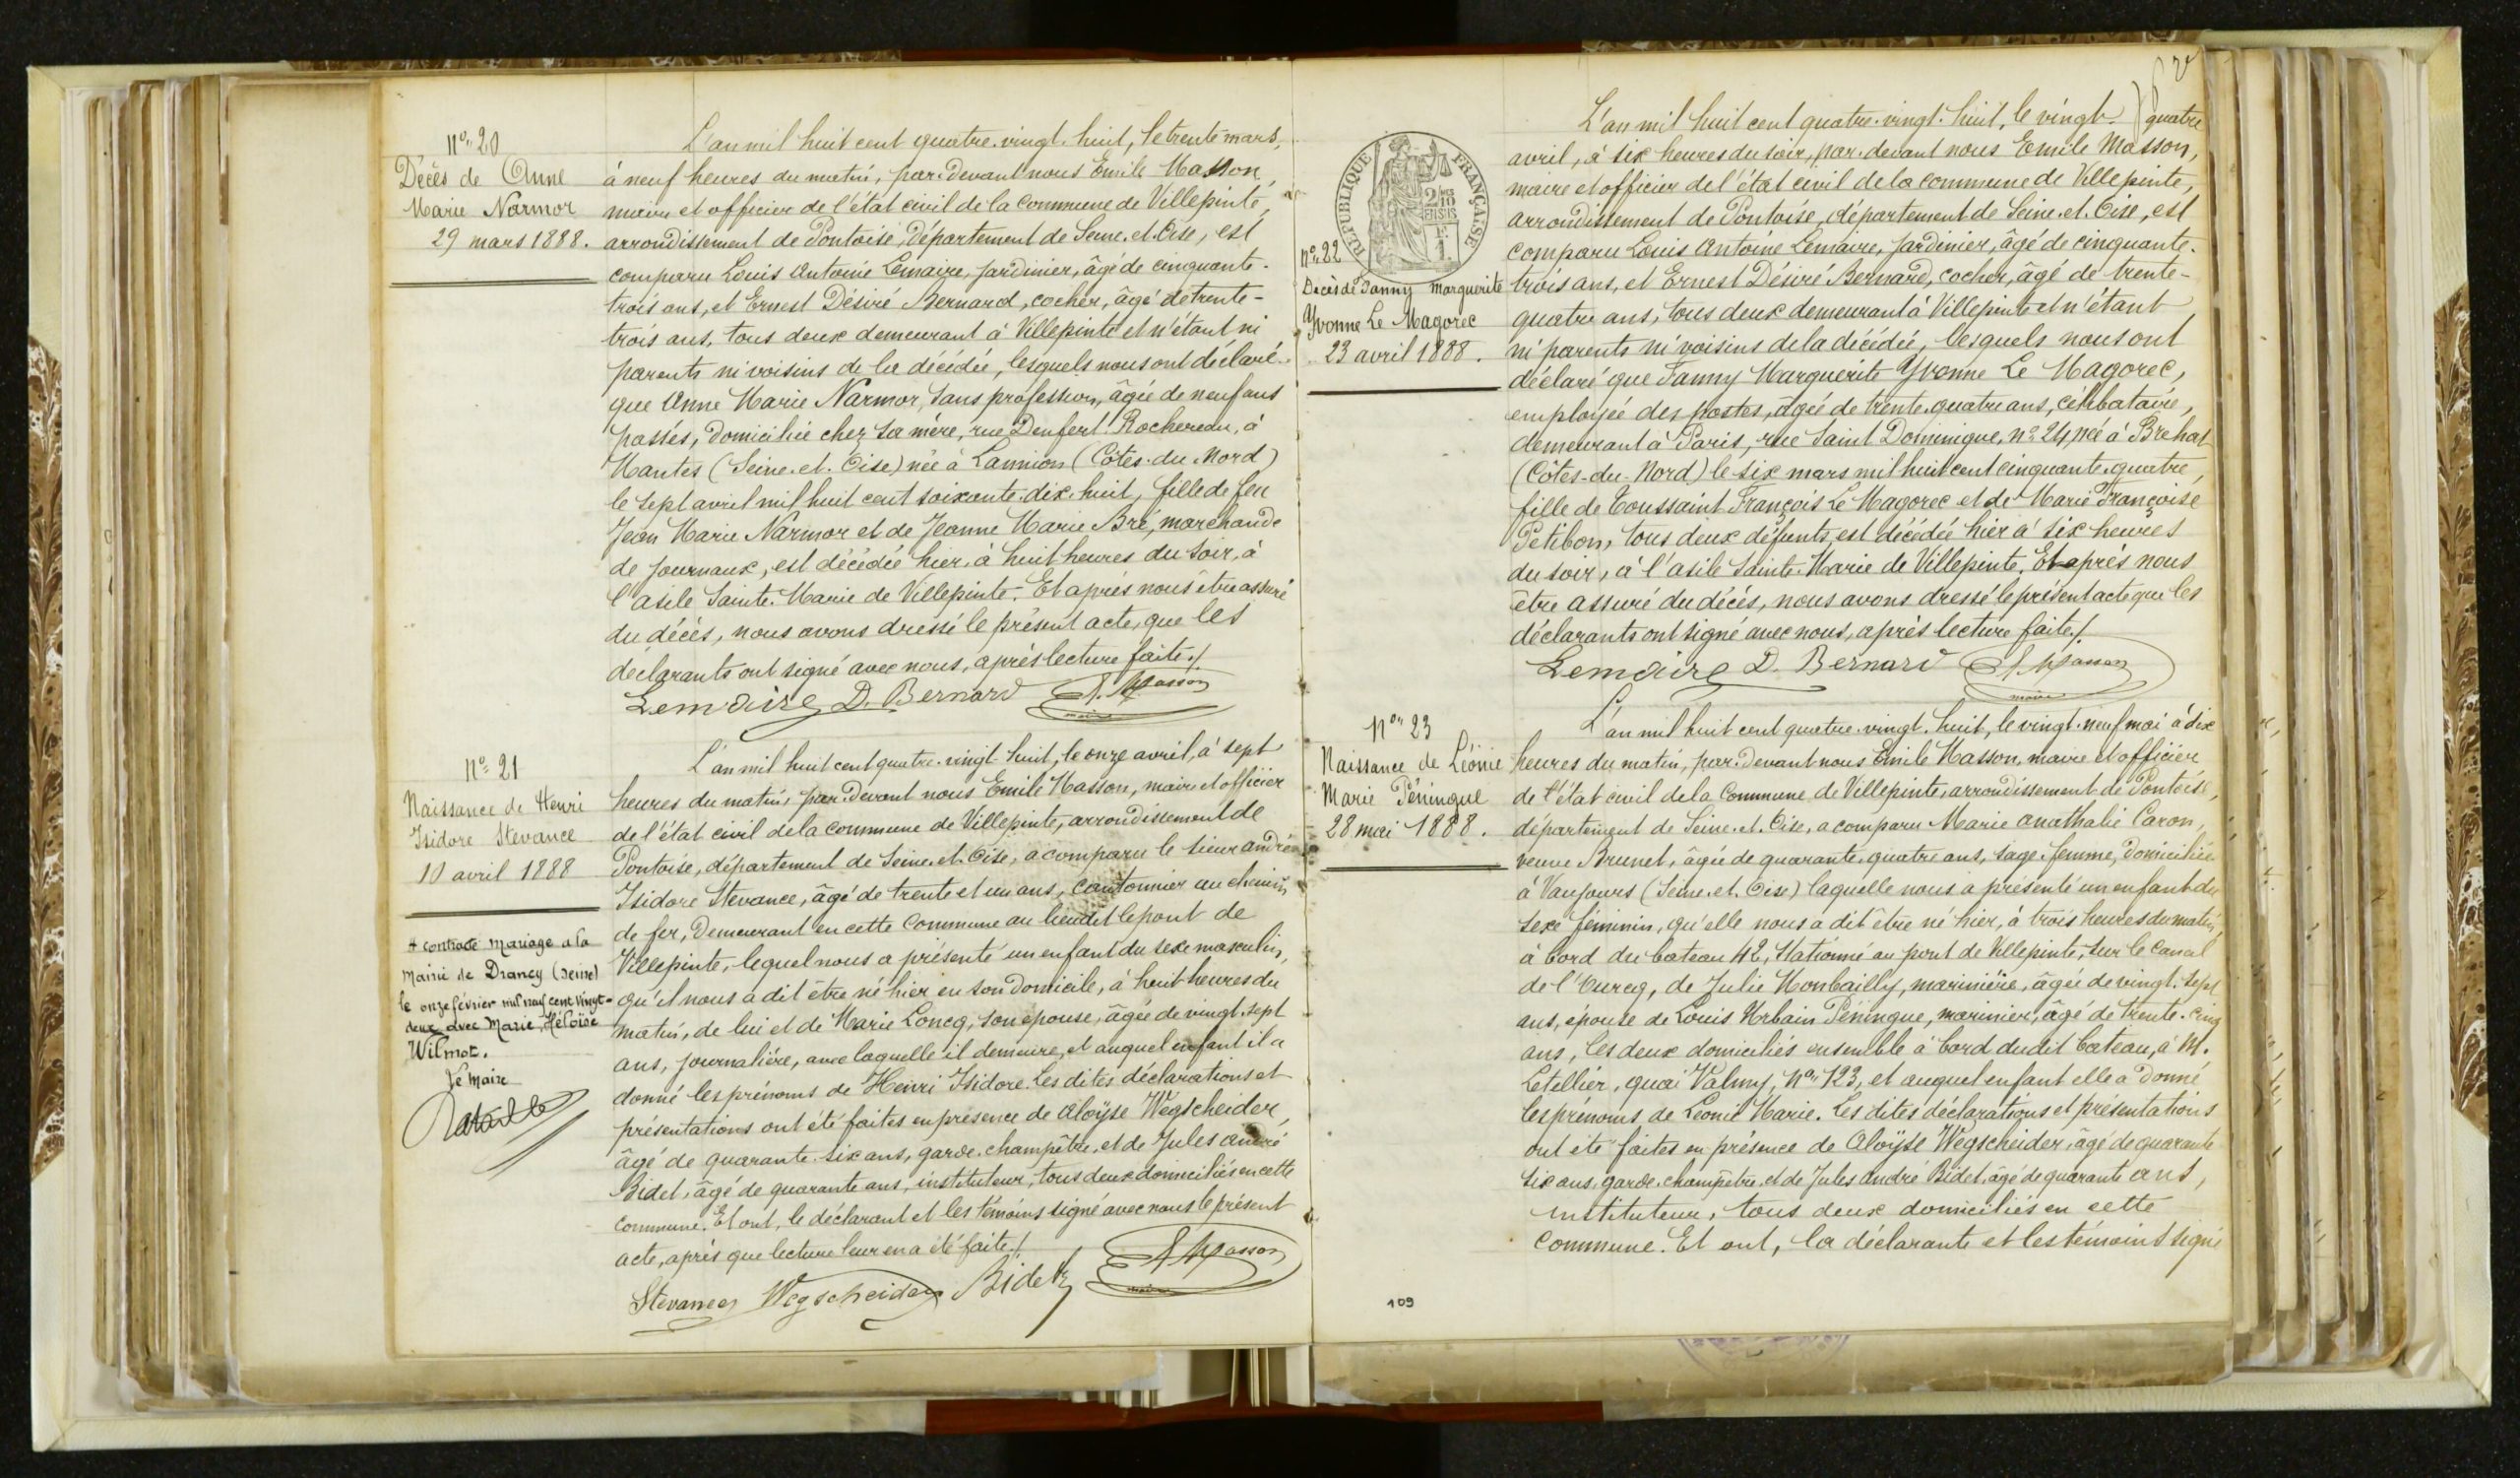 Nº 20
Décès de Anne
Marie Narmor
29 mars 1888.
L'an mil huit cent quatre-vingt-huit, le trente mars,
à neuf heures du matin, par-devant nous Emile Masson,
maire et officier de l'état civil de la commune de Villepinte,
arrondissement de Pontoise, département de Seine-et-Oise, est
comparu Louis Antoine Lemaire, jardinier, âgé de cinquante-
trois ans, et Ernest Désiré Bernard, cocher, âgé de trente-
trois ans, tous deux demeurant à Villepinte et n'étant ni
parents ni voisins de la décédée, lesquels nous ont déclaré
que Anne Marie Narmor, sans profession, âgée de neuf ans
passés, domiciliée chez sa mère, rue Denfert-Rochereau, à
Mantes (Seine-et-Oise) née à Lannion (Côtes-du-Nord)
le sept avril mil huit cent soixante-dix-huit, fille de feu
Jean Marie Narmor et de Jeanne Marie Bré, marchande
de journaux, est décédée hier, à huit heures du soir, à
l'asile Sainte-Marie de Villepinte. Et après nous être assuré
du décès, nous avons dressé le présent acte, que les
déclarants ont signé avec nous, après lecture faite./.
Lemaire D. Bernard E. Masson
maire
Nº 21
Naissance de Henri
Isidore Stevance
10 avril 1888
A contracté mariage à la
Mairie de Drancy (Seine)
le onze février mil neuf cent vingt-
deux avec Marie, Héloïse
Wilmot.
Le Maire
L'an mil huit cent quatre-vingt-huit, le onze avril, à sept
heures du matin, par-devant nous Emile Masson, maire et officier
de l'état civil de la commune de Villepinte, arrondissement de
Pontoise, département de Seine-et-Oise, a comparu le sieur André
Isidore Stevance, âgé de trente et un ans, cantonnier au chemin
de fer, demeurant en cette commune au lieudit le pont de
Villepinte, lequel nous a présenté un enfant du sexe masculin,
qu'il nous a dit être né hier en son domicile, à huit heures du
matin, de lui et de Marie Loncq, son épouse, âgée de vingt-sept
ans, journalière, avec laquelle il demeure, et auquel enfant il a
donné les prénoms de Henri Isidore. Les dites déclarations et
présentations ont été faites en présence de Aloÿse Wegscheider,
âgé de quarante-six ans, garde-champêtre, et de Jules André
Bidel, âgé de quarante ans, instituteur, tous deux domiciliés en cette
commune. Et ont, le déclarant et les témoins signé avec nous le présent
acte, après que lecture leur en a été faite./.
Stevance Wegscheider Bidel E. Masson
maire
quatre
RÉPUBLIQUE FRANÇAISE
Nº 22
Décès de Fanny Marguerite
Yvonne Le Magorec
23 avril 1888.
L'an mil huit cent quatre-vingt-huit, le vingt-
avril, à six heures du soir, par-devant nous Emile Masson,
maire et officier de l'état civil de la commune de Villepinte,
arrondissement de Pontoise, département de Seine-et-Oise, est
comparu Louis Antoine Lemaire, jardinier, âgé de cinquante-
trois ans, et Ernest Désiré Bernard, cocher, âgé de trente-
quatre ans, tous deux demeurant à Villepinte et n'étant
ni parents ni voisins de la décédée, lesquels nous ont
déclaré que Fanny Marguerite Yvonne Le Magorec,
employée des postes, âgée de trente-quatre ans, célibataire,
demeurant à Paris, rue Saint Dominique, nº 24, née à Bréhat
(Côtes-du-Nord) le six mars mil huit cent cinquante-quatre,
fille de Toussaint François Le Magorec et de Marie Françoise
Petibon, tous deux défunts, est décédée hier à six heures
du soir, à l'asile Sainte-Marie de Villepinte. Et après nous
être assuré du décès, nous avons dressé le présent acte que les
déclarants ont signé avec nous, après lecture faite./.
Lemaire D. Bernard E. Masson
maire
Nº 23
Naissance de Léonie
Marie Péningue
28 mai 1888.
L'an mil huit cent quatre-vingt-huit, le vingt-neuf mai à dix
heures du matin, par-devant nous Emile Masson, maire et officier
de l'état civil de la Commune de Villepinte, arrondissement de Pontoise,
département de Seine-et-Oise, a comparu Marie Anathalie Caron,
veuve Brunet, âgée de quarante-quatre ans, sage-femme, domiciliée
à Vaujours (Seine-et-Oise) laquelle nous a présenté un enfant du
sexe féminin, qu'elle nous a dit être né hier, à trois heures du matin,
à bord du bateau 42, stationné au pont de Villepinte, sur le canal
de l'Ourcq, de Julie Monbailly, marinière, âgée de vingt-sept
ans, épouse de Louis Urbain Péningue, marinier, âgé de trente-cinq
ans, les deux domiciliés ensemble à bord dudit bateau, à M.
Letellier, quai Valmy, Nº 123, et auquel enfant elle a donné
les prénoms de Léonie Marie. Les dites déclarations et présentations
ont été faites en présence de Aloÿse Wegscheider, âgé de quarante
six ans, garde-champêtre, et de Jules André Bidel, âgé de quarante ans,
instituteur, tous deux domiciliés en cette
commune. Et ont, la déclarante et les témoins signé
109